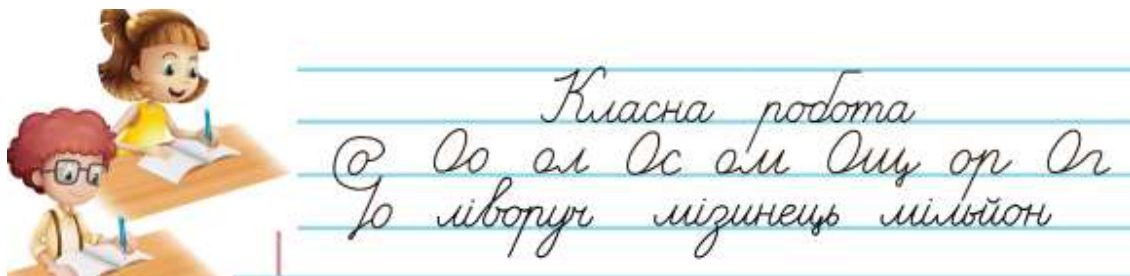 Класна робота
О Оо ол Ос ом Ощ ор Ог
о ліворуч мізинець мільйон